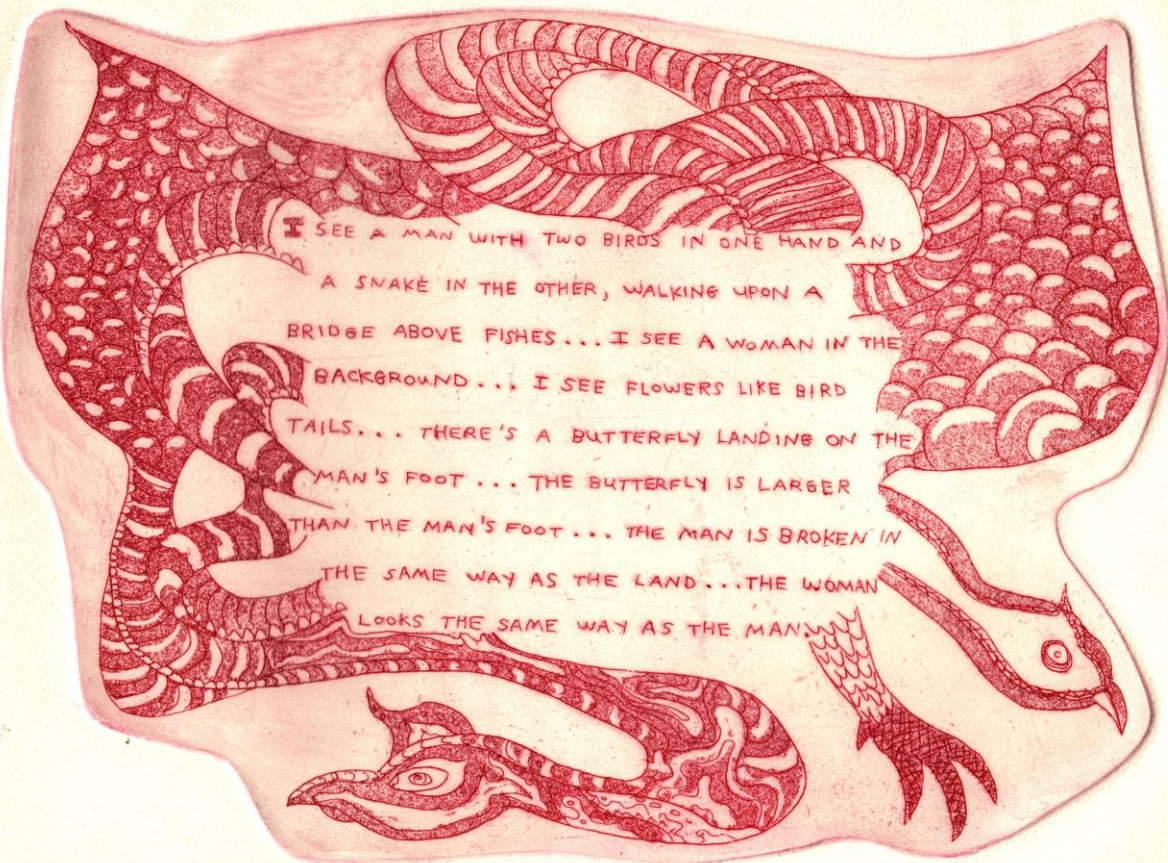 I SEE A MAN WITH TWO BIRDS IN ONE HAND AND
A SNAKE IN THE OTHER, WALKING UPON A
BRIDGE ABOVE FISHES... I SEE A WOMAN IN THE
BACKGROUND... I SEE FLOWERS LIKE BIRD
TAILS... THERE'S A BUTTERFLY LANDING ON THE
MAN'S FOOT... THE BUTTERFLY IS LARGER
THAN THE MAN'S FOOT... THE MAN IS BROKEN IN
THE SAME WAY AS THE LAND...THE WOMAN
LOOKS THE SAME WAY AS THE MAN.